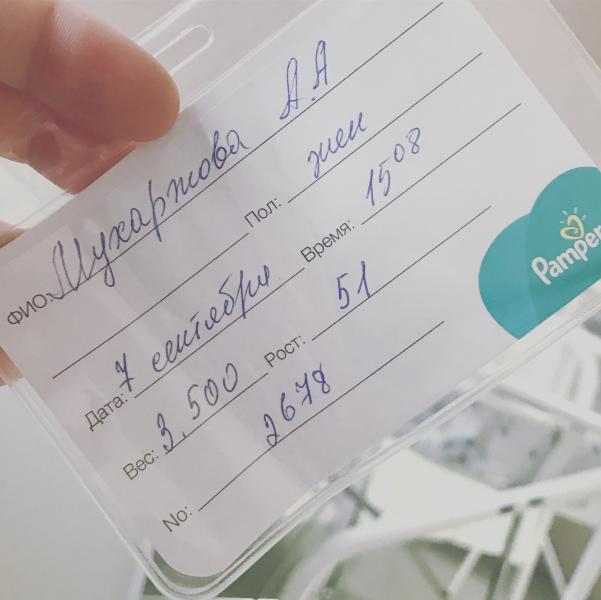 ФИО: Мухаржова А.А
Пол: жен
Дата: 7 сентября Время: 15 08
Вес: 3.500 Рост: 51
No: 2678
Pampers